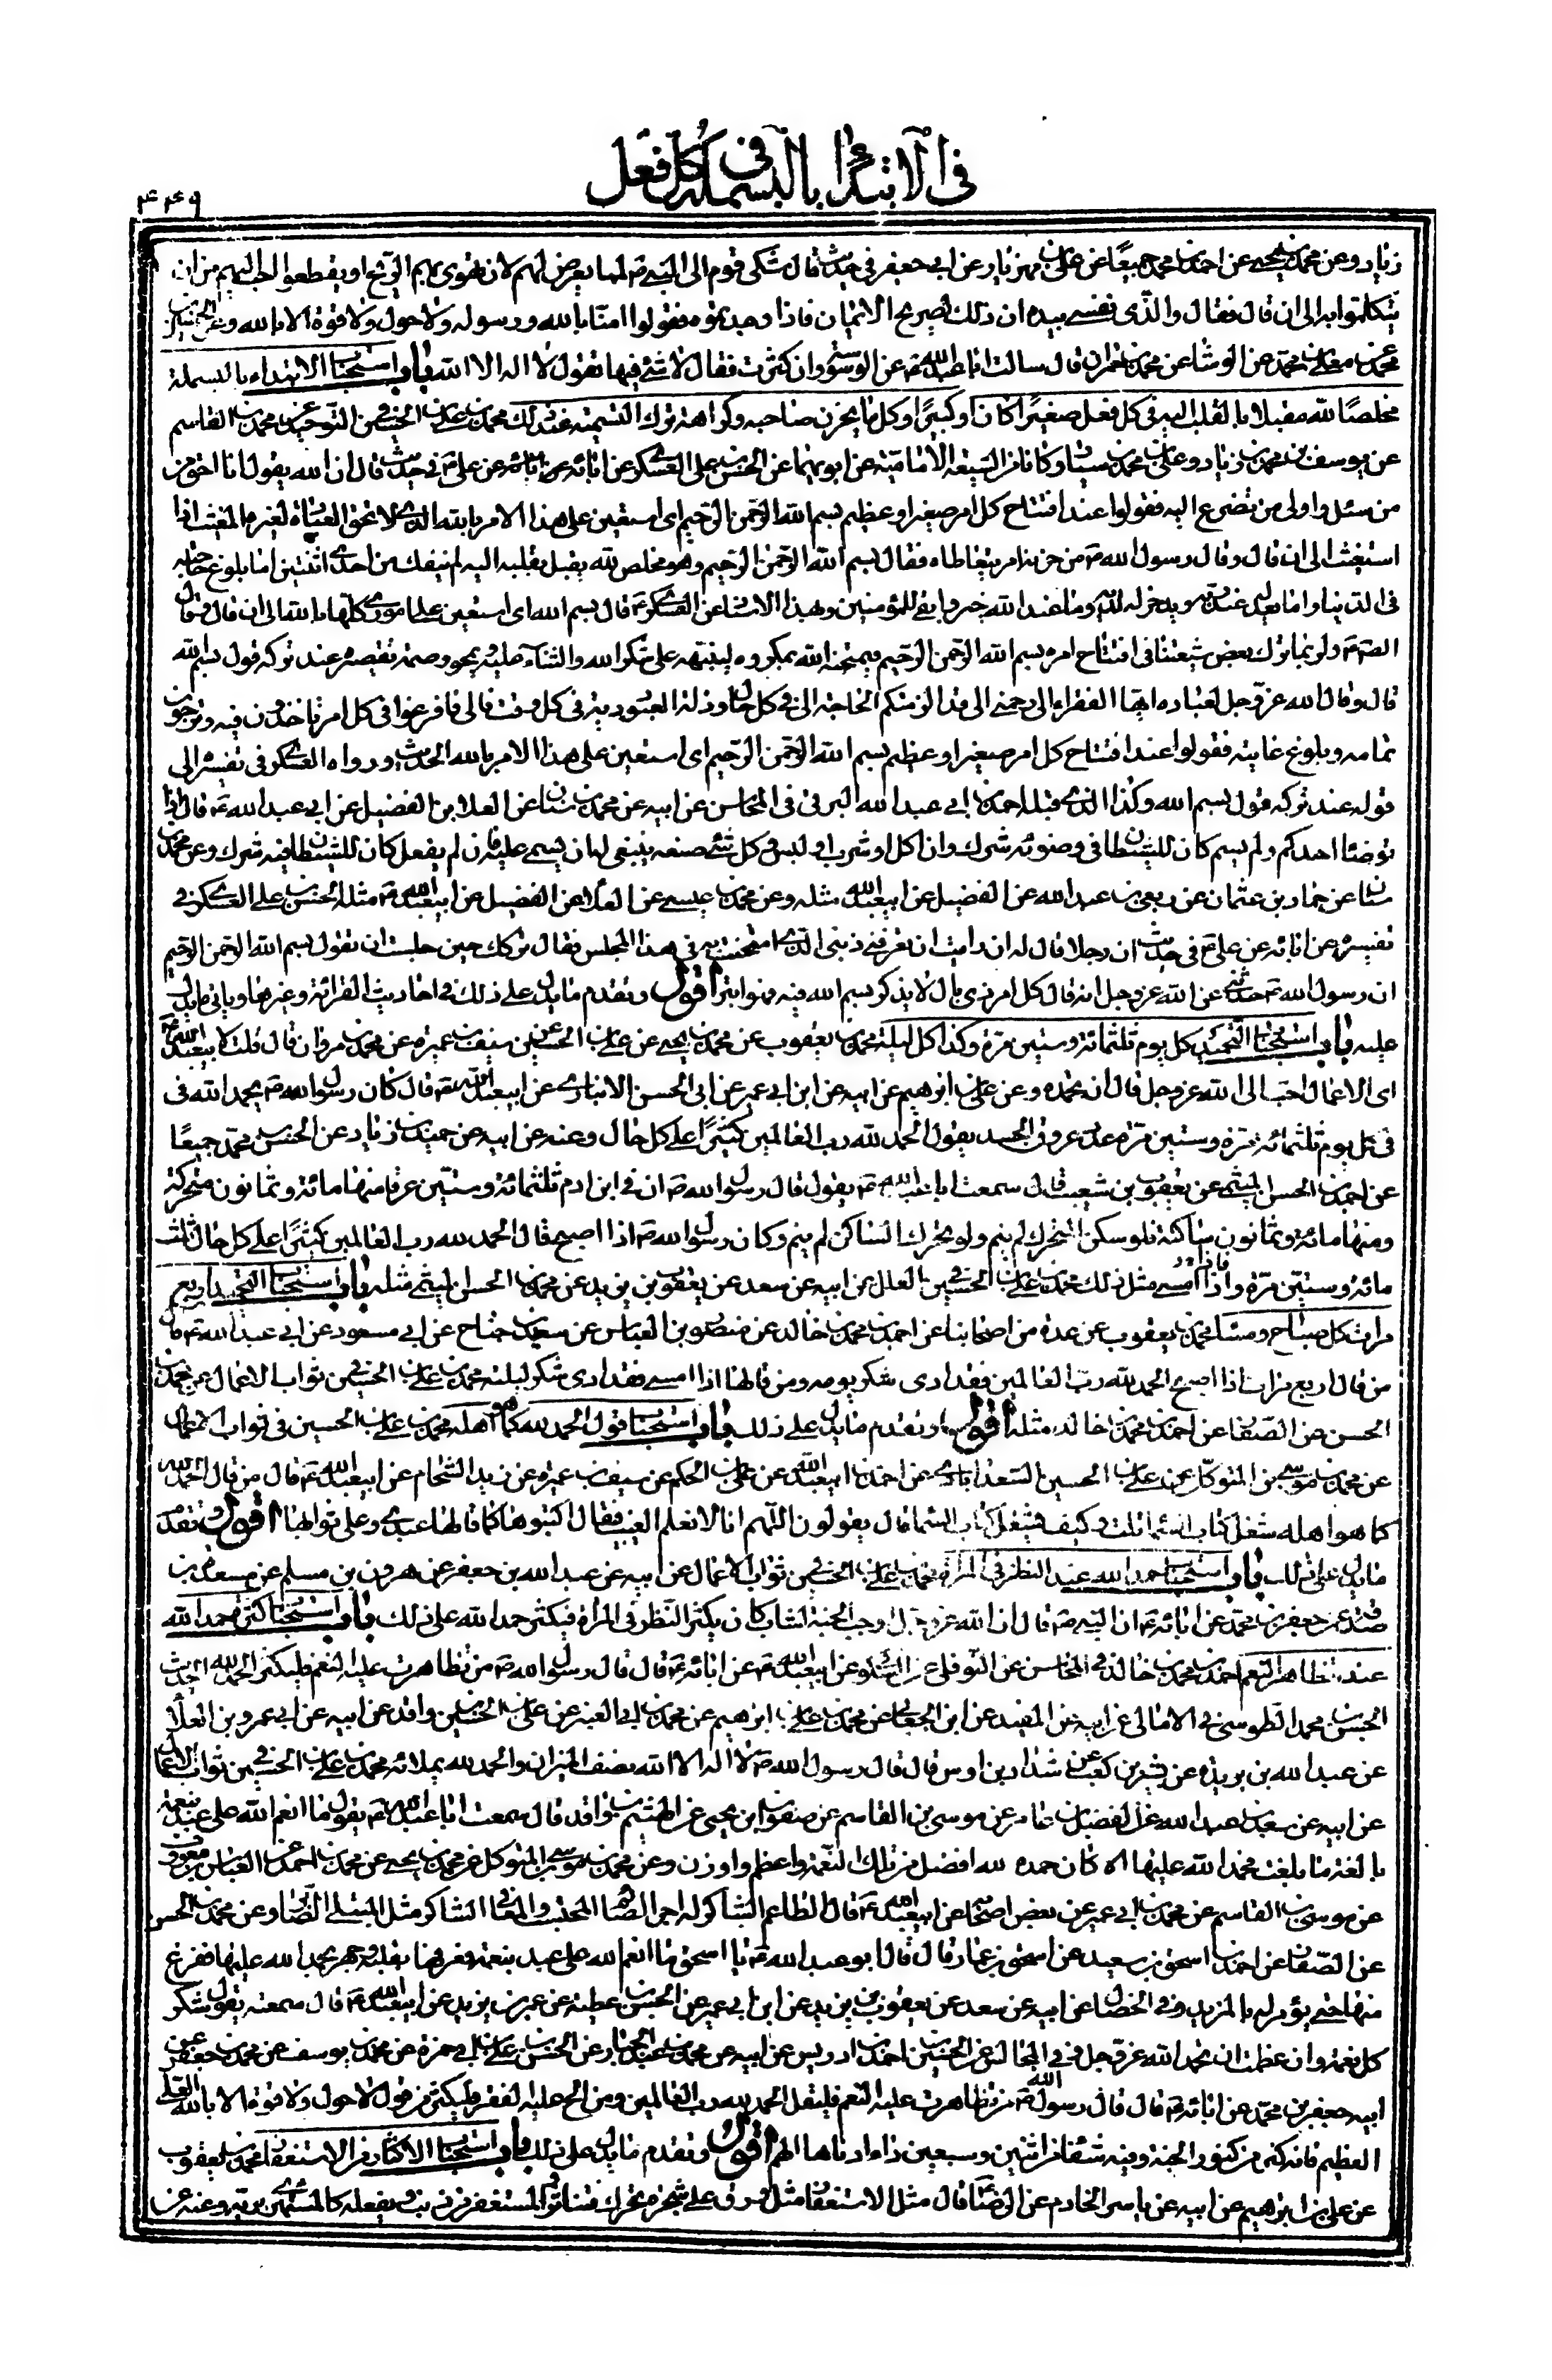 في الابتداء بالبسملة في كل فعل
۴۴۹
زياد وعن محمد بن يحيى عن احمد بن محمد جميعًا عن علي بن مهزيار عن ابي جعفر في حديث قال شكى قوم الى النبي ص لمما يعرض لهم لان تهوى بهم الريح او يقطعوا احب اليهم من ان
يتكلموا به الى ان قال فقال والذي نفسي بيده ان ذلك لصريح الايمان فاذا وجدتموه فقولوا امنا بالله ورسوله ولا حول ولا قوة الا بالله وعن الحسين بن
محمد عن معلى بن محمد عن الوشا عن محمد بن حمران قال سالت ابا عبد الله ع عن الوسوسة وان كثرت فقال لا شيء فيها تقول لا اله الا الله باب استحباب الابتداء بالبسملة
مخلصًا لله مقبلا بالقلب اليه في كل فعل صغيرًا كان او كبيرًا وكل ما يحزن صاحبه وكراهة ترك التسمية عند ذلك محمد بن علي بن الحسين في التوحيد عن محمد بن القاسم
عن يوسف بن محمد بن زياد وعلي بن محمد بن سيار وكانا من الشيعة الامامية عن ابويهما عن الحسن بن علي العسكري عن ابائه عن علي ع في حديث قال ان الله يقول انا احق من
من سئل واولى من تضرع اليه فقولوا عند افتتاح كل امر صغير او عظيم بسم الله الرحمن الرحيم اي استعين على هذا الامر بالله الذي لا تحق العبادة لغيره المغيث اذا
استغيث الى ان قال وقال رسول الله ص من حزنه امر يتعاطاه فقال بسم الله الرحمن الرحيم وهو مخلص لله يقبل بقلبه اليه لم ينفك من احدى اثنتين اما بلوغ حاجته
في الدنيا واما يعد له عند ربه ويدخر له لديه وما عند الله خير وابقى للمؤمنين وبهذا الاسناد عن العسكري ع قال بسم الله اي استعين على اموري كلها بالله الى ان قال وقال
الص ع ولربما ترك بعض شيعتنا في افتتاح امره بسم الله الرحمن الرحيم فيمتحنه الله بمكروه لينبهه على شكر الله والثناء عليه ويمحو وصمة تقصيره عند تركه قول بسم الله
قال وقال الله عز وجل لعباده ايها الفقراء الى رحمتي اني قد الزمتكم الحاجة الي في كل حال وذلة العبودية في كل وقت فالي فافزعوا في كل امر تاخذون فيه وترجون
تمامه وبلوغ غايته فقولوا عند افتتاح كل امر صغير او عظيم بسم الله الرحمن الرحيم اي استعين على هذا الامر بالله الحديث ورواه العسكري في تفسيره الى
قوله عند تركه قول بسم الله وكذا الذي قبله احمد بن ابي عبد الله البرقي في المحاسن عن ابيه عن محمد بن سنان عن العلا بن الفضيل عن ابي عبد الله ع قال اذا
توضا احدكم ولم يسم كان للشيطان في وضوئه شرك وان اكل او شرب او لبس وكل شيء صنعه ينبغي له ان يسمي عليه فان لم يفعل كان للشيطان فيه شرك وعن محمد بن
سنان عن حماد بن عثمان عن ربعي بن عبد الله عن الفضيل عن ابي عبد الله مثله وعن محمد بن عيسى عن العلا عن الفضيل عن ابي عبد الله ع مثله الحسن بن علي العسكري في
تفسيره عن ابائه عن علي ع في حديث ان رجلا قال له ان رايت ان تعرفني ذنبي الذي امتحنت به في هذا المجلس فقال تركك حين جلست ان تقول بسم الله الرحمن الرحيم
ان رسول الله ص حدثني عن الله عز وجل انه قال كل امر ذي بال لا يذكر بسم الله فيه فهو ابتر اقول وتقدم ما يدل على ذلك في احاديث القرائة وغيرها وياتي ما يدل
عليه باب استحباب التحميد كل يوم ثلثمائة وستين مرة وكذا كل ليلة محمد بن يعقوب عن محمد بن يحيى عن علي بن الحسين عن سيف بن عميرة عن محمد بن مروان قال قلت لابي عبد الله ع
اي الاعمال احب الى الله عز وجل قال ان تحمده وعن علي بن ابراهيم عن ابيه عن ابن ابي عمير عن ابي الحسن الانباري عن ابي عبد الله ع قال كان رسول الله ص يحمد الله في
في كل يوم ثلثمائة مرة وستين مرة عدد عروق الجسد يقول الحمد لله رب العالمين كثيرًا على كل حال وعنه عن ابيه عن حميد بن زياد عن الحسن بن محمد جميعًا
عن احمد بن الحسن الميثمي عن يعقوب بن شعيب قال سمعت ابا عبد الله ع يقول قال رسول الله ص ان في ابن ادم ثلثمائة وستين عرقا منها مائة وثمانون متحركة
ومنها مائة وثمانون ساكنة فلو سكن المتحرك لم ينم ولو تحرك الساكن لم ينم وكان رسول الله ص اذا اصبح قال الحمد لله رب العالمين كثيرًا على كل حال ثلث
مائة وستين مرة واذا امسى قال مثل ذلك محمد بن علي بن الحسين في العلل عن ابيه عن سعد عن يعقوب بن يزيد عن محمد بن الحسن الميثمي مثله باب استحباب التحميد اربع
مرات كل صباح ومساء محمد بن يعقوب عن عدة من اصحابنا عن احمد بن محمد بن خالد عن منصور بن العباس عن سعيد بن جناح عن ابي مسعود عن ابي عبد الله ع قال
من قال اربع مرات اذا اصبح الحمد لله رب العالمين فقد ادى شكر يومه ومن قالها اذا امسى فقد ادى شكر ليلته محمد بن علي بن الحسين في ثواب الاعمال عن محمد بن
الحسن عن الصفار عن احمد بن محمد بن خالد مثله اقول وتقدم ما يدل على ذلك باب استحباب قول الحمد لله كما هو اهله محمد بن علي بن الحسين في ثواب الاعمال
عن محمد بن موسى بن المتوكل عن علي بن الحسين السعدابادي عن احمد بن ابي عبد الله عن علي بن الحكم عن سيف بن عميرة عن زيد الشحام عن ابي عبد الله ع قال من قال الحمد لله
كما هو اهله شغل كتاب السماء قلت وكيف يشغل كتاب السماء قال يقولون اللهم انا لا نعلم الغيب فقال اكتبوها كما قالها عبدي وعلي ثوابها اقول وتقدم
ما يدل على ذلك باب استحباب حمد الله عند النظر في المراة محمد بن علي بن الحسين في ثواب الاعمال عن ابيه عن عبد الله بن جعفر عن هرون بن مسلم عن مسعدة بن
صدقة عن جعفر بن محمد عن ابائه ع ان النبي ص قال ان الله عز وجل اوجب الجنة لشاب كان يكثر النظر في المراة فيكثر حمد الله على ذلك باب استحباب كثرة حمد الله
عند تظاهر النعم احمد بن محمد بن خالد في المحاسن عن النوفلي عن السكوني عن ابي عبد الله ع عن ابائه ع قال قال رسول الله ص من تظاهرت عليه النعم فليكثر الحمد لله الحديث
الحسن بن محمد الطوسي في الامالي عن ابيه عن المفيد عن ابن الجعابي عن محمد بن علي بن ابراهيم عن محمد بن ابي العنبر عن علي بن الحسين بن واقد عن ابيه عن ابي عمرو بن العلا
عن عبد الله بن بريدة عن بشير بن كعب عن شداد بن اوس قال قال رسول الله ص لا اله الا الله نصف الميزان والحمد لله يملاه محمد بن علي بن الحسين في ثواب الاعمال
عن ابيه عن سعد بن عبد الله عن الفضل بن عامر عن موسى بن القاسم عن صفوان بن يحيى عن الهيثم بن واقد قال سمعت ابا عبد الله ع يقول ما انعم الله على عبد بنعمة
بالغة ما بلغت فحمد الله عليها الا كان حمده لله افضل من تلك النعمة واعظم واوزن وعن محمد بن موسى بن المتوكل عن محمد بن يحيى عن محمد بن احمد عن العباس بن معروف
عن موسى بن القاسم عن محمد بن ابي عمير عن بعض اصحابنا عن ابي عبد الله ع قال الطاعم الشاكر له اجر الصائم المحتسب والمعافى الشاكر مثل المبتلى الصابر وعن محمد بن الحسن
عن الصفار عن احمد بن اسحق بن سعيد عن اسحق بن عمار قال قال ابو عبد الله ع يا اسحق ما انعم الله على عبد بنعمة فعرفها بقلبه وجهر بحمد الله عليها ففرغ
منها حتى يؤمر له بالمزيد وفي الخصال عن ابيه عن سعد عن يعقوب بن يزيد عن ابن ابي عمير عن الحسن بن عطية عن عمر بن يزيد عن ابي عبد الله ع قال سمعته يقول شكر
كل نعمة وان عظمت ان تحمد الله عز وجل وفي المجالس عن الحسين بن احمد بن ادريس عن ابيه عن محمد بن عبد الجبار عن الحسن بن علي بن ابي حمزة عن محمد بن يوسف عن محمد بن جعفر عن
ابيه جعفر بن محمد عن ابائه ع قال قال رسول الله ص من تظاهرت عليه النعم فليقل الحمد لله رب العالمين ومن الح عليه الفقر فليكثر من قول لا حول ولا قوة الا بالله العلي
العظيم فانه كنز من كنوز الجنة وفيه شفاء من اثنين وسبعين داء ادناها الهم اقول وتقدم ما يدل على ذلك باب استحباب الاكثار من الاستغفار محمد بن يعقوب
عن علي بن ابراهيم عن ابيه عن ياسر الخادم عن الرضا ع قال مثل الاستغفار مثل ورق على شجرة تحرك فتناثر والمستغفر من ذنب ويفعله كالمستهزئ بربه وعنه عن